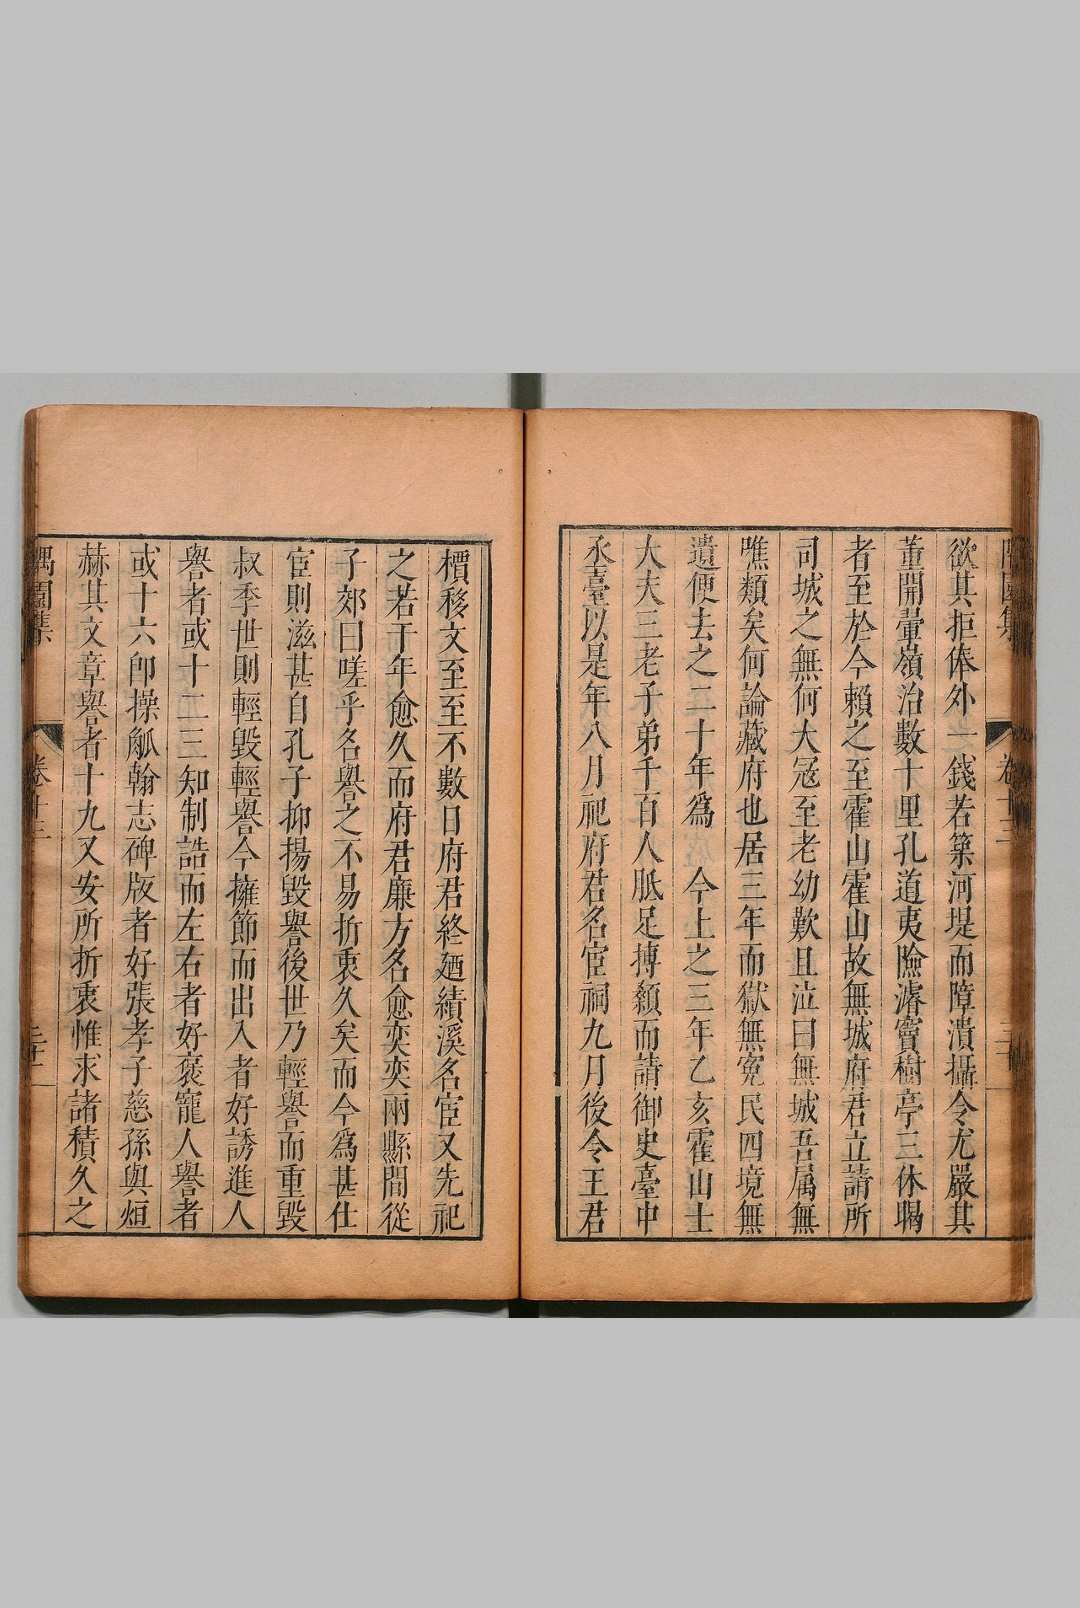 隅園集 卷十三
欲其拒俸外一錢若築河堤而障潰攝令尤嚴其
董開暈嶺治數十里孔道夷險濬竇樹亭三休暍
者至於今賴之至霍山霍山故無城府君立請所
司城之無何大冦至老幼歎且泣曰無城吾属無
噍類矣何論藏府也居三年而獄無冤民四境無
遺便去之二十年爲 今上之三年乙亥霍山士
大夫三老子弟千百人胝足摶顙而請御史臺中
丞臺以是年八月祀府君名宦祠九月後令王君
檟移文至至不數日府君終廼績溪名宦又先祀
之若干年愈久而府君廉方名愈奕奕兩縣間從
子郊曰嗟乎名譽之不易折衷久矣而今爲甚仕
宦則滋甚自孔子抑揚毀譽後世乃輕譽而重毀
叔季世則輕毀輕譽今擁節而出入者好誘進人
譽者或十二三知制誥而左右者好褒寵人譽者
或十六卽操觚翰志碑版者好張孝子慈孫與烜
赫其文章譽者十九又安所折衷惟求諸積久之
隅園集 卷十三